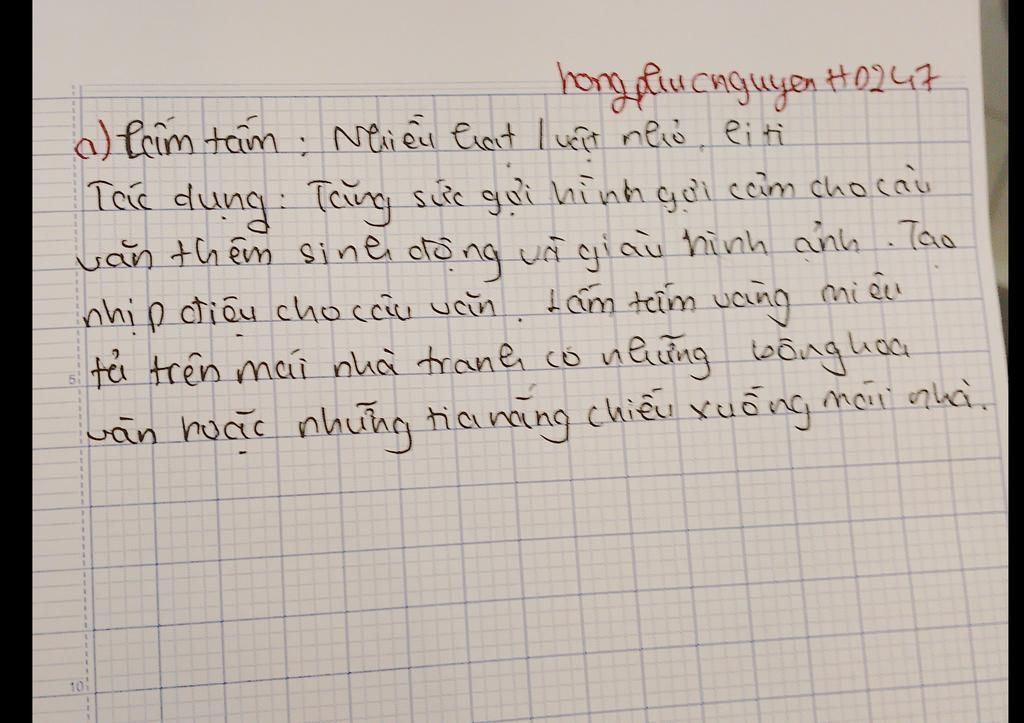 hongphucnguyen H0247
a) Lấm tấm: Nhiều hạt luợt nhỏ, li ti
Tác dụng: Tăng sức gợi hình gợi cảm cho câu
văn thêm sinh động và giàu hình ảnh. Tạo
nhịp điệu cho câu văn. Lấm tấm vàng miêu
tả trên mái nhà tranh có những bông hoa
vàn hoặc những tia nắng chiếu xuống mái nhà.